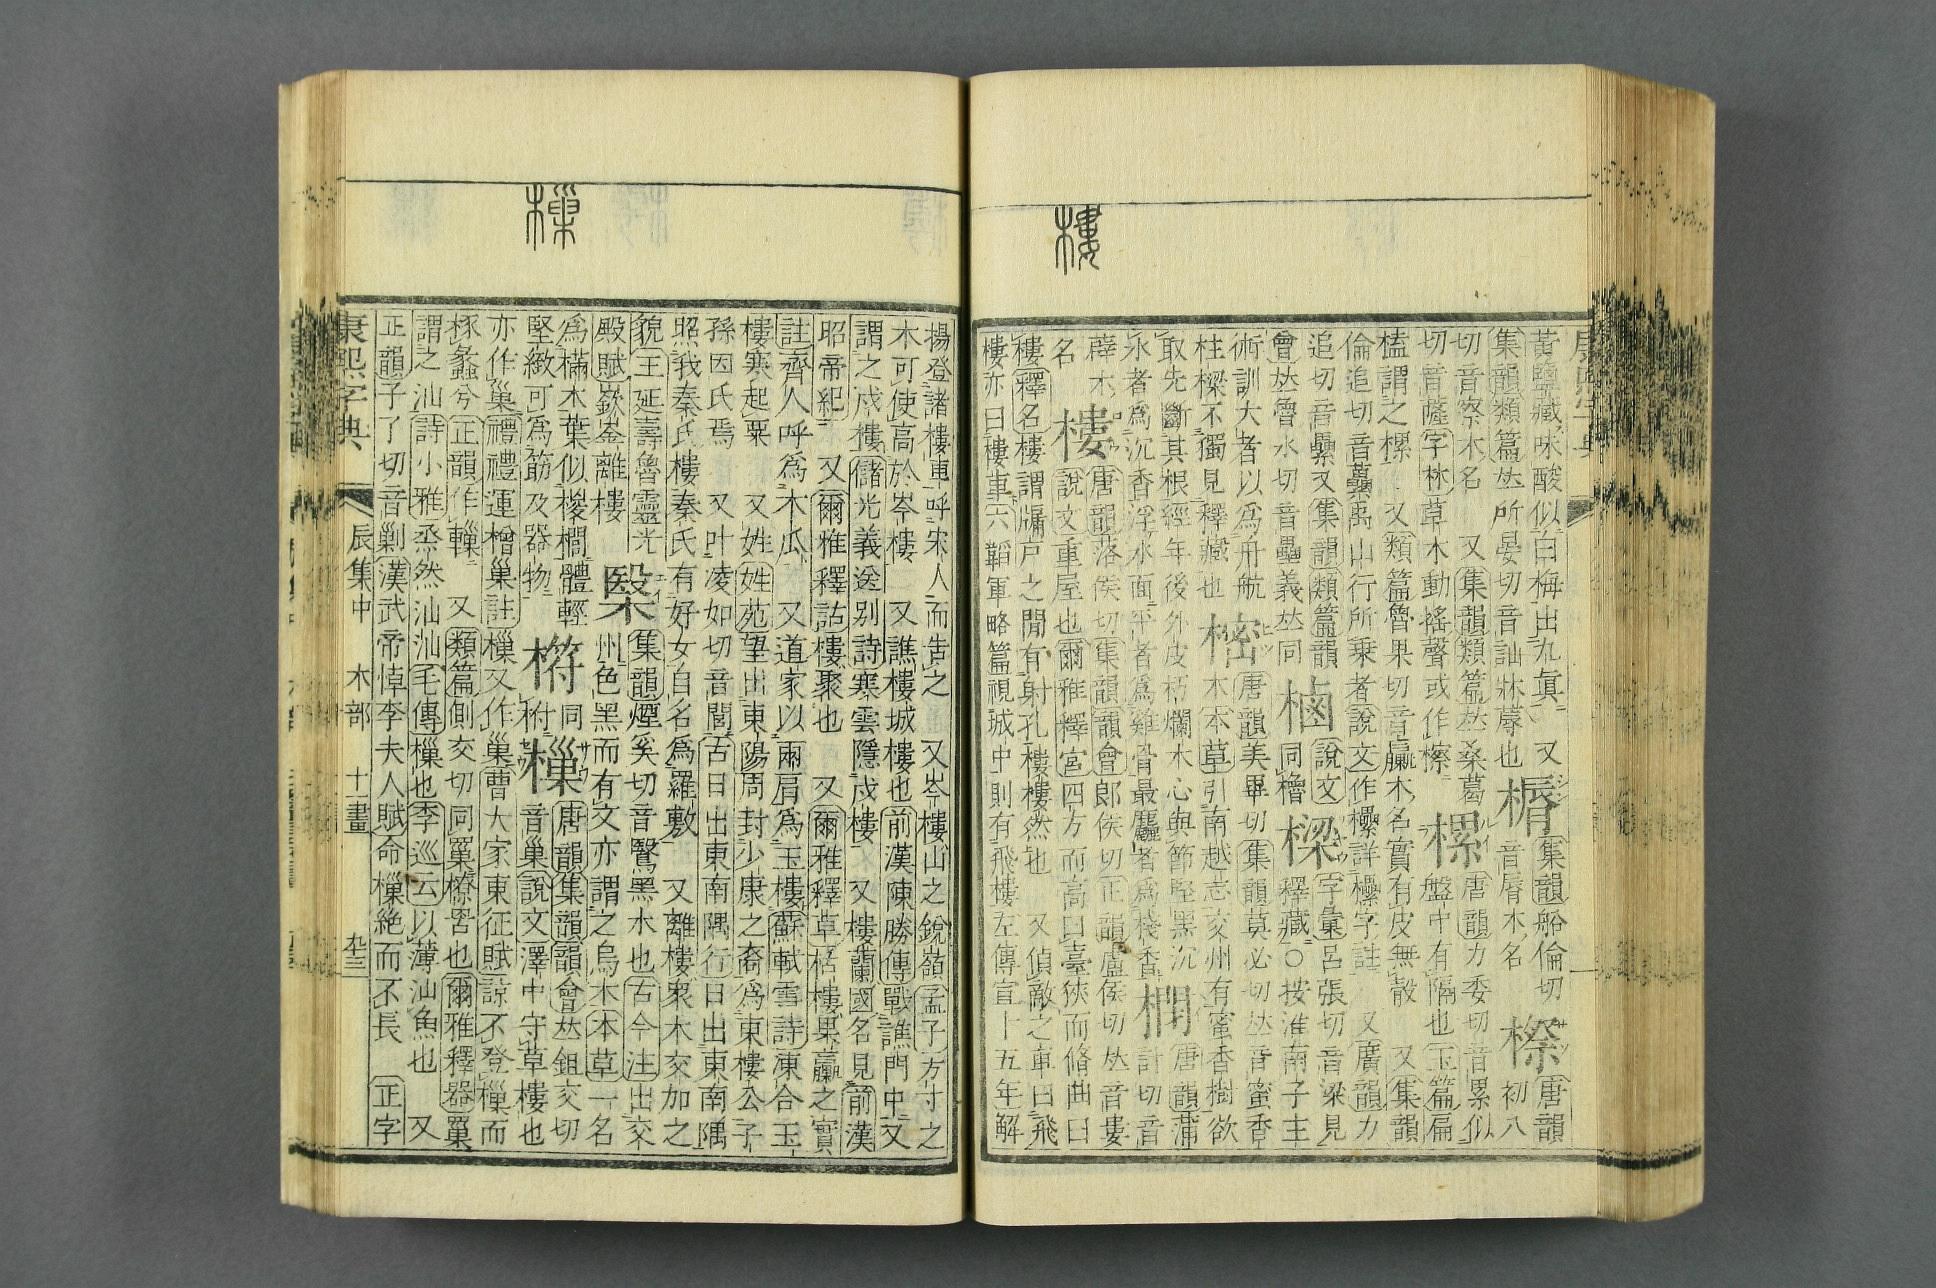 樓
黃鹽藏味酸似白梅出九眞 又 楯 集韻船倫切音脣木名 榇 唐韻初八
集韻類篇𠀤所晏切音訕牀蓐也
切音察木名 又集韻類篇𠀤桑葛 樏 唐韻力委切音累似
切音薩字林草木動搖聲或作櫒 盤中有隔也玉篇扁
榼謂之樏 又類篇魯果切音臝木名實有皮無殼 又集韻
倫追切音虆禹山行所乗者說文作欙詳欙字註 又廣韻力
追切音纍又集韻類篇韻 樐 說文同櫓 樑 字彙呂張切音梁見
會𠀤魯水切音壘義𠀤同 釋藏○按淮南子主
術訓大者以爲舟航 樒 唐韻美畢切集韻莫必切𠀤音蜜香
柱樑不獨見釋藏也 木本草引南越志交州有蜜香樹欲
取先斷其根經年後外皮朽爛木心與節堅黑沉 樃
水者爲沉香浮水面平者爲雞骨最麤者爲棧香 計切音
薜木名 樓 唐韻落侯切集韻韻會郎侯切正韻盧侯切𠀤音婁
說文重屋也爾雅釋宮四方而高曰臺狹而脩曲曰
樓釋名樓謂牖戸之閒有射孔樓樓然也 又偵敵之車曰飛
樓亦曰樓車六韜軍略篇視城中則有飛樓左傳宣十五年解
樔
揚登諸樓車呼宋人而告之 又岑樓山之銳嶺孟子方寸之
木可使高於岑樓 又譙樓城樓也前漢陳勝傳戰譙門中又
謂之戍樓儲光義送别詩寒雲隱戍樓 又樓蘭國名見前漢
昭帝紀 又爾雅釋詁樓聚也 又爾雅釋草栝樓果臝之實
註齊人呼爲木瓜 又道家以兩肩爲玉樓蘇軾雪詩凍合玉
樓寒起粟 又姓姓苑望出東陽周封少康之裔爲東樓公子
孫因氏焉 又叶凌如切音閭古日出東南隅行日出東南隅
照我秦氏樓秦氏有好女自名爲羅敷 又離樓衆木交加之
貌王延壽魯靈光殿賦嶔崟離樓 檕 集韻煙奚切音鷖黑木也古今注出交
州色黑而有文亦謂之烏木本草一名
爲樠木葉似椶櫚體輕堅緻可爲筯及器物 𣚊 同柎 樔 唐韻集韻韻會𠀤鉏交切
音巢說文澤中守草樓也
亦作巢禮禮運橧巢註樔又作巢曹大家東征賦諒不登樔而
椓蠡兮正韻作轈 又類篇側交切同罺橑罟也爾雅釋器罺
謂之汕詩小雅烝然汕汕毛傳樔也李巡云以薄汕魚也 又
正韻子了切音剿漢武帝悼李夫人賦命樔絶而不長 正字
康熙字典 辰集中 木部 十一畫